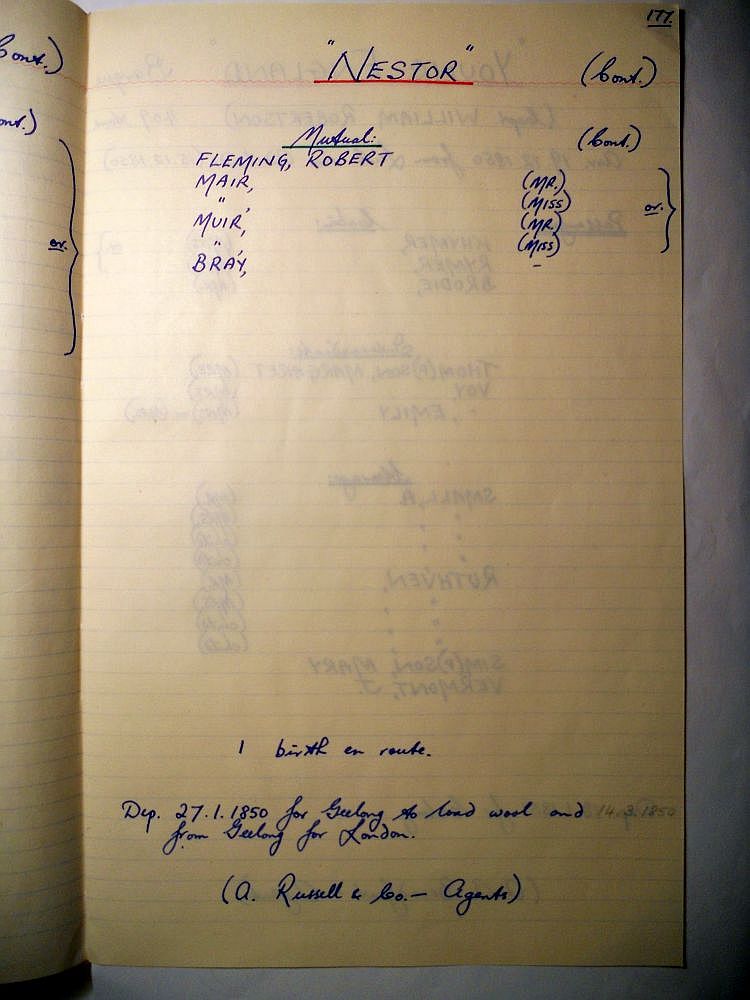 177.
"NESTOR" (Cont.)
Mutual: (Cont.)
FLEMING, ROBERT
MAIR, (MR.)
" , (MISS) or.
MUIR, (MR.)
" , (MISS)
BRAY, -
or.
1 birth en route.
Dep. 27.1.1850 for Geelong to load wool and 14.3.1850
from Geelong for London.
(A. Russell & Co. — Agents)